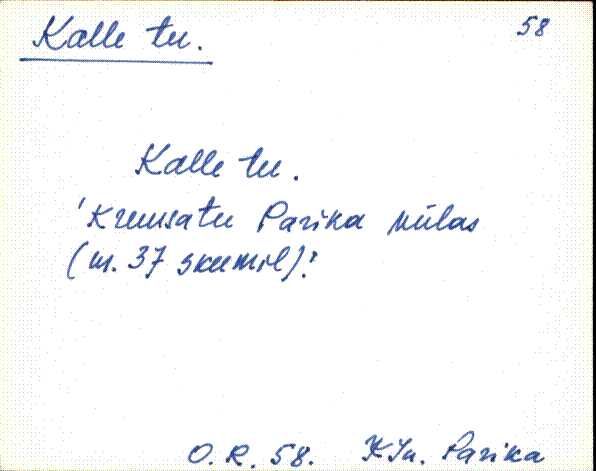 Kalle tu. 58
Kalle tu.
'Krunsatu Parika külas
(m. 37 skeemil)'.
O. R. 58. KJn. Parika